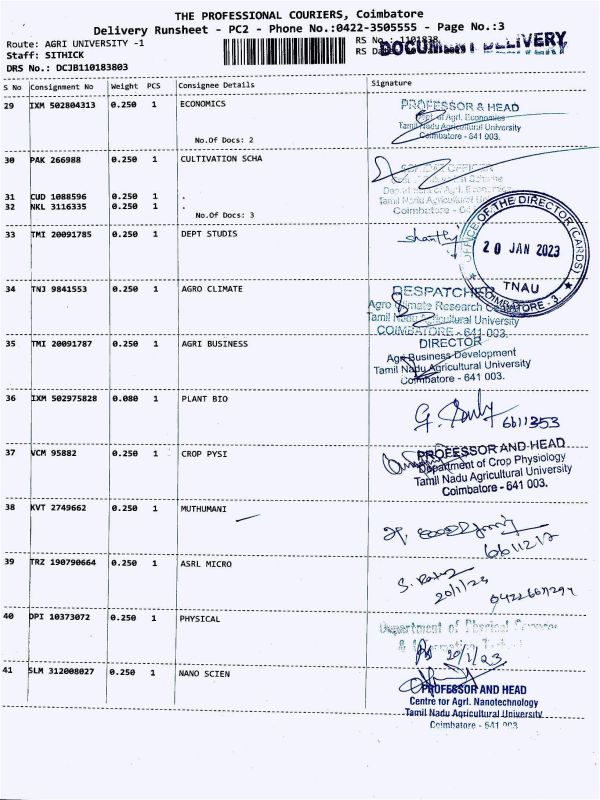 THE PROFESSIONAL COURIERS, Coimbatore
Delivery Runsheet - PC2 - Phone No.:0422-3505555 - Page No.:3
Route: AGRI UNIVERSITY -1
RS No.: 1101838
DOCUMENT DELIVERY
Staff: SITHICK
RS Da
DRS No.: DCJB110183803
S No Consignment No Weight PCS Consignee Details Signature
29 IXM 502804313 0.250 1 ECONOMICS
PROFESSOR & HEAD
Dept. of Agrl. Economics
Tamil Nadu Agricultural University
Coimbatore - 641 003.
No.Of Docs: 2
30 PAK 266988 0.250 1 CULTIVATION SCHA
SCHEME OFFICER
Scheme
Department of Agrl. Economics
Tamil Nadu Agricultural
Coimbatore - 64
31 CUD 1088596 0.250 1 .
32 NKL 3116335 0.250 1 .
No.Of Docs: 3
33 TMI 20091785 0.250 1 DEPT STUDIS
shanthi
OFFICE OF THE DIRECTOR (CARDS)
20 JAN 2023
TNAU
★ COIMBATORE - 3 ★
34 TNJ 9841553 0.250 1 AGRO CLIMATE
DESPATCHED
Agro Climate Research
Tamil Nadu Agricultural University
COIMBATORE - 641 003.
35 TMI 20091787 0.250 1 AGRI BUSINESS
DIRECTOR
Agri Business Development
Tamil Nadu Agricultural University
Coimbatore - 641 003.
36 IXM 502975828 0.080 1 PLANT BIO
6611353
37 VCM 95882 0.250 1 CROP PYSI
PROFESSOR AND HEAD
Department of Crop Physiology
Tamil Nadu Agricultural University
Coimbatore - 641 003.
38 KVT 2749662 0.250 1 MUTHUMANI
39 TRZ 190790664 0.250 1 ASRL MICRO
20/1/23
40 DPI 10373072 0.250 1 PHYSICAL
Department of Physical Sciences
& Information
20/1/23
41 SLM 312008027 0.250 1 NANO SCIEN
PROFESSOR AND HEAD
Centre for Agrl. Nanotechnology
Tamil Nadu Agricultural University
Coimbatore - 641 003